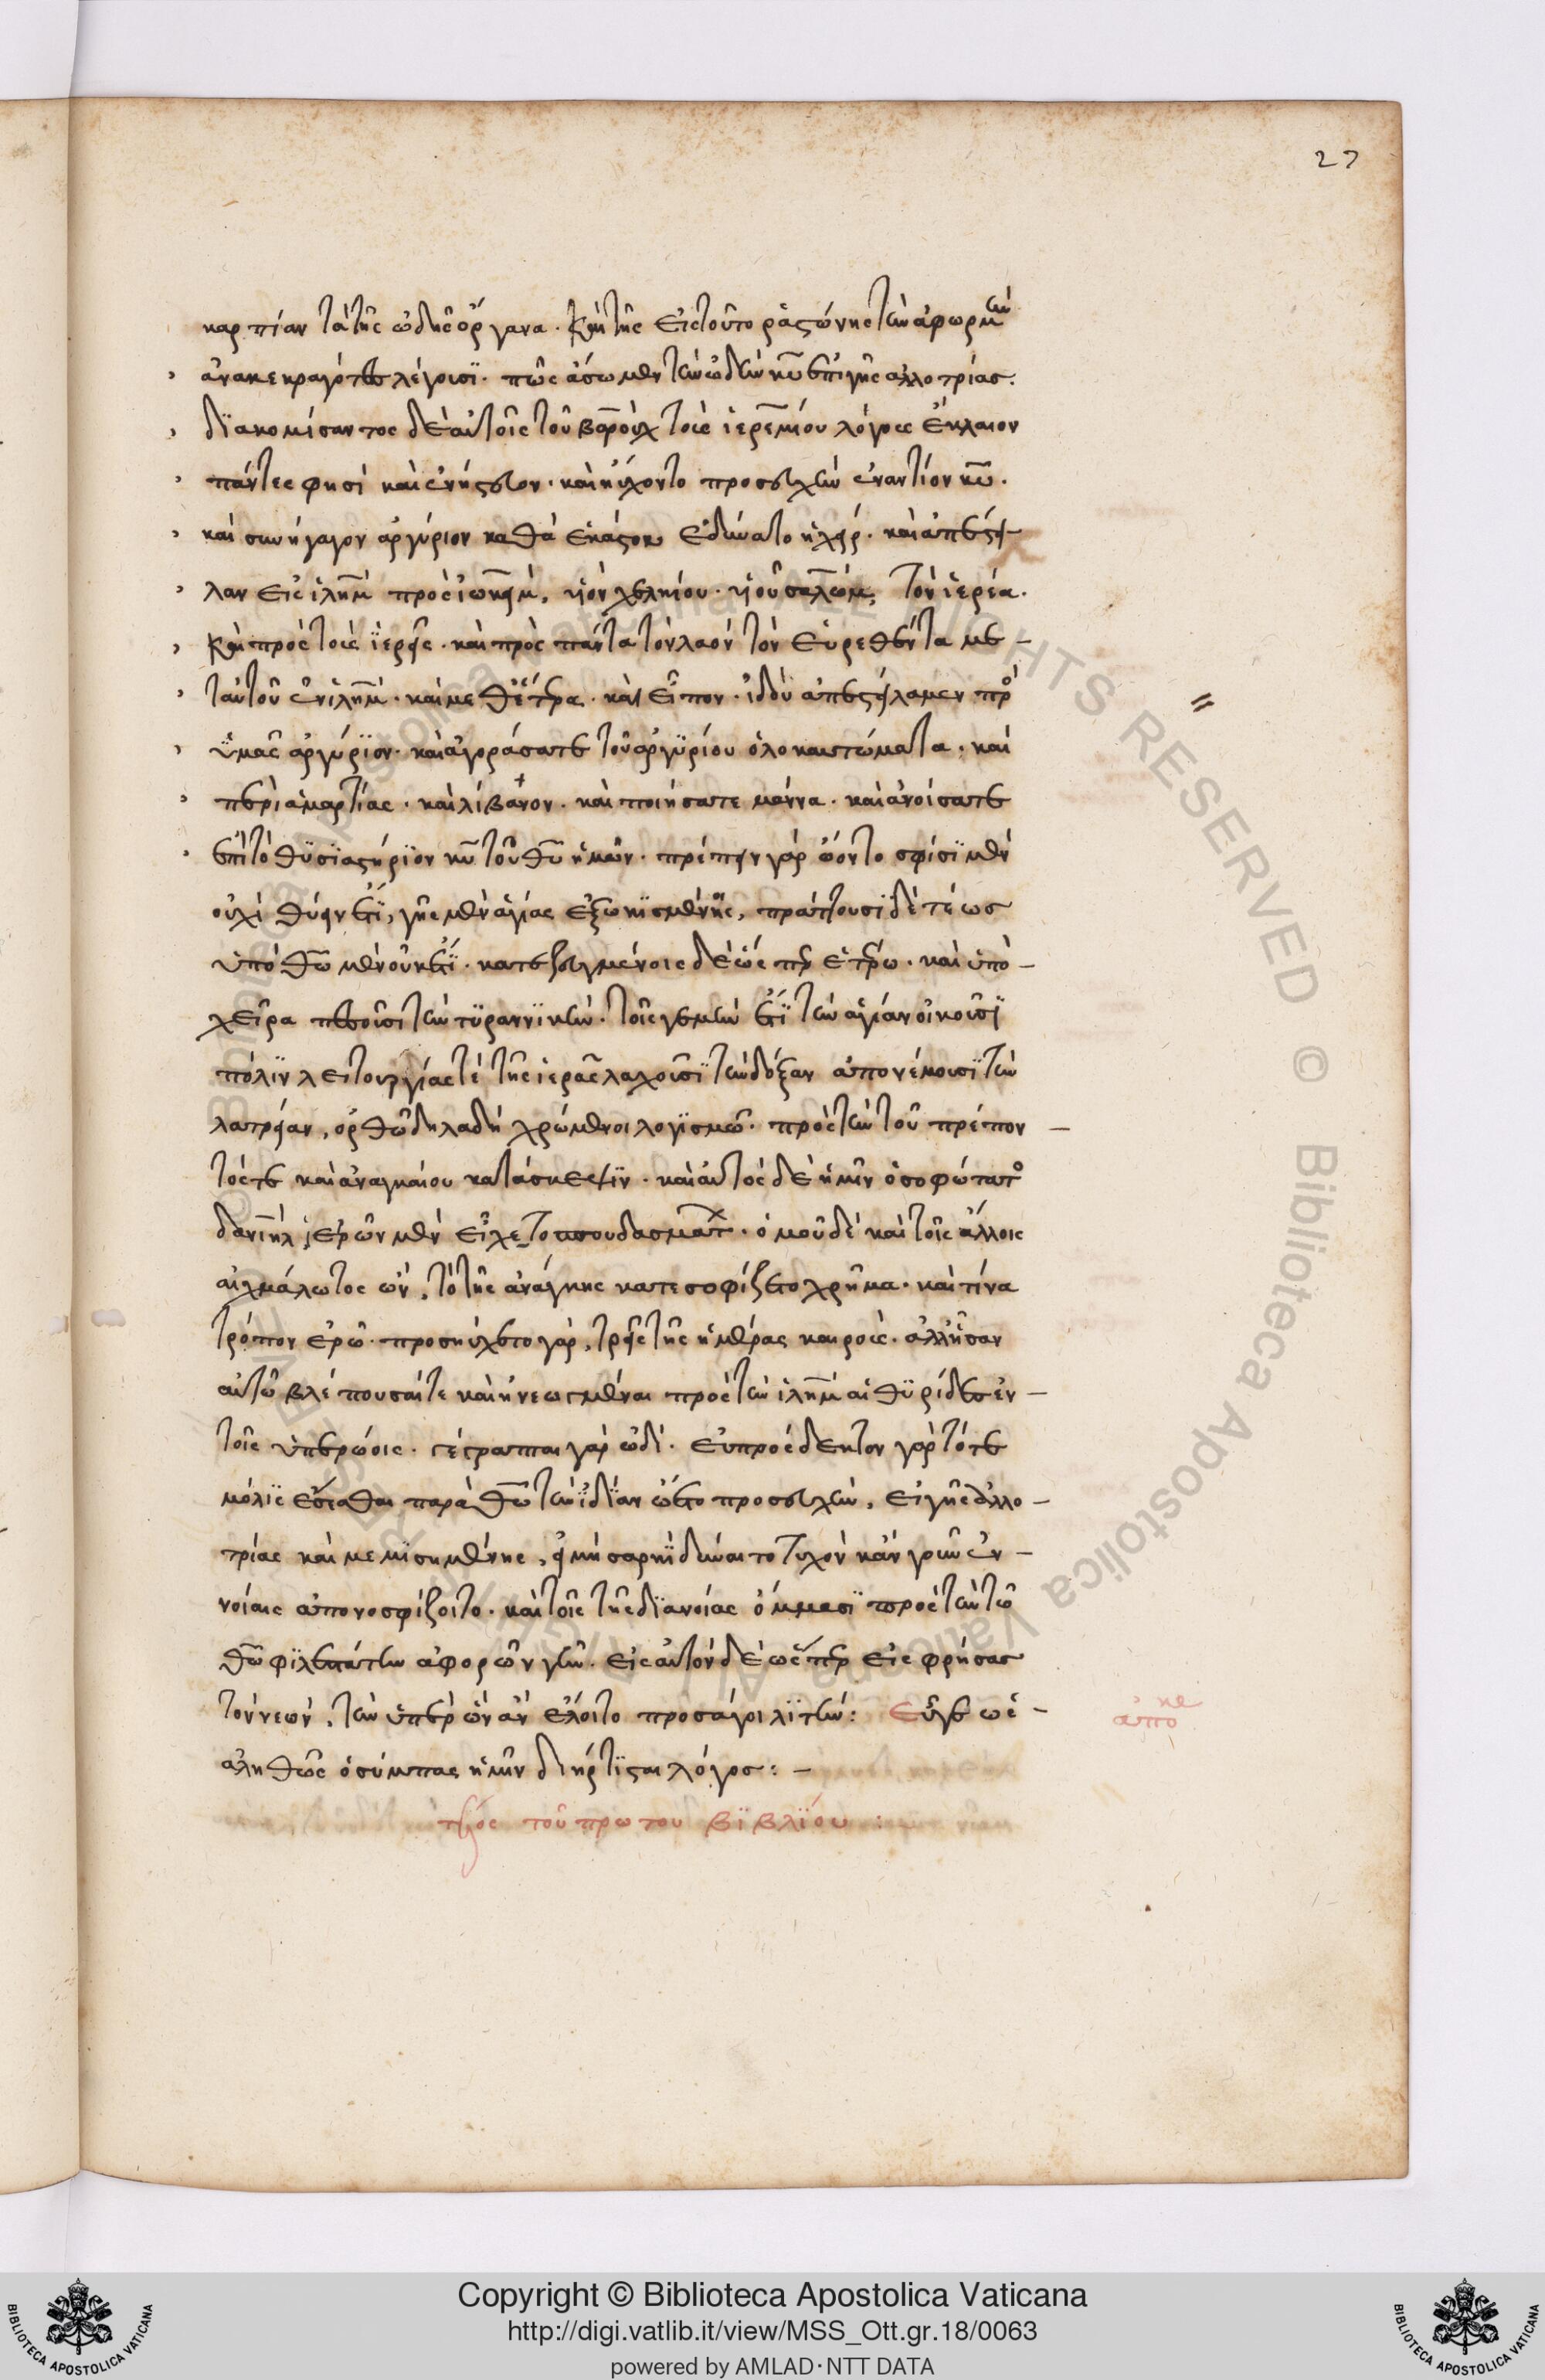 27
καρπίαν τὰ τῆς ὠδῆς ὄργανα. καὶ τῆς εἰς τοῦτο ῥαστώνης τὴν ἀφορμὴν
ἀνακεκραγότες λέγουσϊ. πῶς ἄσωμεν τὴν ὠδὴν κυ ἐπὶ γῆς ἀλλοτρίας.
δϊακομίσαντος δὲ αὐτοῖς τοῦ βαροὺχ τοὺς ἱερεμίου λόγους ἔκλαιον
πάντες φησὶ καὶ ἐνήστευον. καὶ ηὔχοντο προσευχὴν ἐναντίον κυ.
καὶ συνήγαγον ἀργύριον καθὰ ἑκάστου ἐδύνατο ἡ χείρ. καὶ ἀπέστει
λαν εἰς ἱλημ πρὸς ἰωακεὶμ, υἱὸν χελκίου. υἱοῦ σαλὼμ, τὸν ἱερέα.
καὶ πρὸς τοὺς ϊερεῖς. καὶ πρὸς πάντα τὸν λαὸν τὸν εὑρεθέντα με-
τ αὐτοῦ ἐν ἱλημ. καὶ μεθέτερα. καὶ εἶπον. ἰδοὺ ἀπεστείλαμεν πρὸ
ὑμᾶς ἀργύρϊον. καὶ ἀγοράσατε τοῦ ἀργϋρίου ὁλοκαυτώματα. καὶ
περὶ ἁμαρτίας. καὶ λίβανον. καὶ ποιήσατε μάννα. καὶ ἀνοίσατε
ἐπὶ τὸ θϋσϊαστήρϊον κυ τοῦ θυ ἡμῶν. πρέπειν γὰρ ᾤοντο σφίσϊ μὲν
οὐχὶ θύειν ἔτϊ, γῆς μὲν ἁγίας ἐξῳκϊσμένοις, πράττουσϊ δὲ τέως
ὑπὸ θω μὲν οὐκ ἔτϊ. κατεζευγμένοις δὲ ὥσπερ ἑτέρω. καὶ ὑπὸ-
χεῖρα πεσοῦσι τὴν τϋραννϊκήν. τοῖς γεμὴν ἔτϊ τὴν ἁγίαν οἰκοῦσϊ
πόλϊν λειτουργίας τὲ τῆς ἱερᾶς λαχοῦσϊ τὴν δόξαν ἀπονέμουσϊ τὴν
λατρείαν, ὀρθῶ δηλαδὴ χρώμενοι λογϊσμῶ. πρὸς τὴν τοῦ πρέπον-
τός τε καὶ ἀναγκαίου κατάσκεψϊν. καὶ αὐτὸς δὲ ἡμῖν ὁ σοφώτατο
δανιὴλ, ἱερῶν μὲν εἴχετο σπουδασματ. ὁμοῦ δὲ καὶ τοῖς ἄλλοις
αἰχμάλωτος ὢν, τὸ τῆς ἀνάγκης κατεσοφίζετο χρῆμα. καὶ τίνα
τρόπον ἐρῶ. προσηύχετο γὰρ, τρεῖς τῆς ἡμέρας καιροὺς. ἀλλ ἦσαν
αὐτῶ βλέπουσαί τε καὶ ἠνεωγμέναι πρὸς τὴν ἱλημ αἱ θϋρίδες ἐν-
τοῖς ὑπερώοις. γέγραπται γὰρ ὡδί. εὐπρόσδεκτον γὰρ τότε
μόλϊς ἔσεσθαι παρὰ θω τὴν ϊδίαν ᾤετο προσευχὴν, εἰ γῆς ἀλλο-
τρίας καὶ μεμϊσημένης, εἰ μὴ σαρκὶ δύναιτο τυχὸν κἂν γοῦν ἐν-
νοίαις ἀπονοσφίζοιτο. καὶ τοῖς τῆς δϊανοίας ὄμμασϊ πρὸς τὴν τῶ
θω φϊλτάτην ἀφορῶν γῆν. εἰς αὐτὸν δὲ ὥσπερ εἰσφρήσας
τὸν νεὼν, τὴν ὑπὲρ ὧν ἂν ἕλοιτο προσάγοι λϊτήν: εὖγε ὡς-
ἀληθῶς ὁ σύμπας ἡμῖν διήρτϊσται λόγος:-
τέλος τοῦ πρώτου βϊβλϊόυ:
Copyright © Biblioteca Apostolica Vaticana
http://digi.vatlib.it/view/MSS_Ott.gr.18/0063
powered by AMLAD·NTT DATA